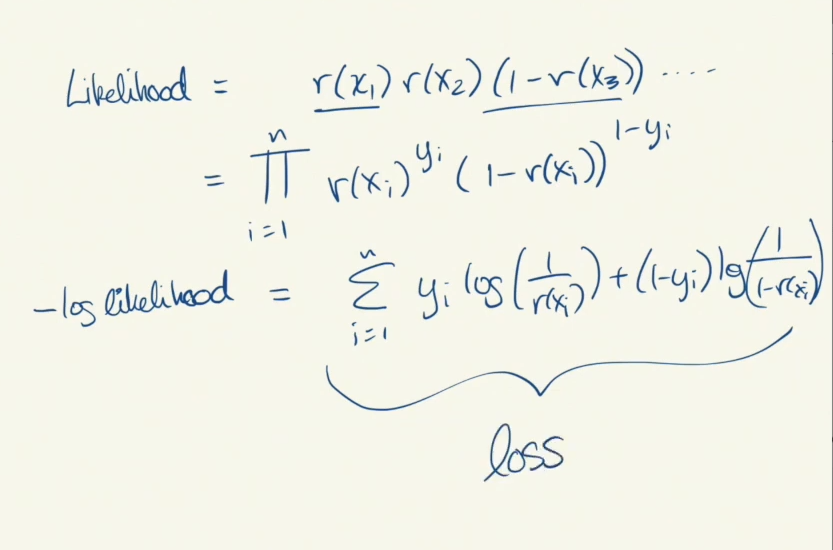 Likelihood = r(x₁) r(x₂) (1-r(x₃)) ....
= ∏ᵢ₌₁ⁿ r(xᵢ)^yᵢ (1-r(xᵢ))^1-yᵢ
-log likelihood = ∑ᵢ₌₁ⁿ yᵢ log(1/r(xᵢ)) + (1-yᵢ) log(1/(1-r(xᵢ))
loss